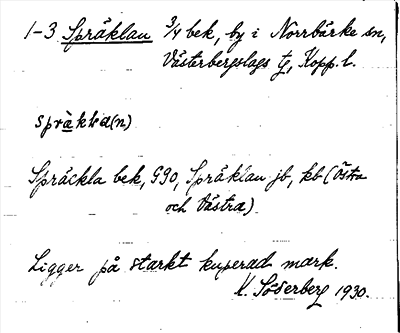 1-3 Spräklan 3/4 bek, by i Norrbärke sn,
Västerbergslags tg, Kopp. l.
spräkla(n)
Spräckla bek, G90, Spräklan jb, kb (Östra
och Västra)
Ligger på starkt kuperad mark.
K. Söderberg 1930.